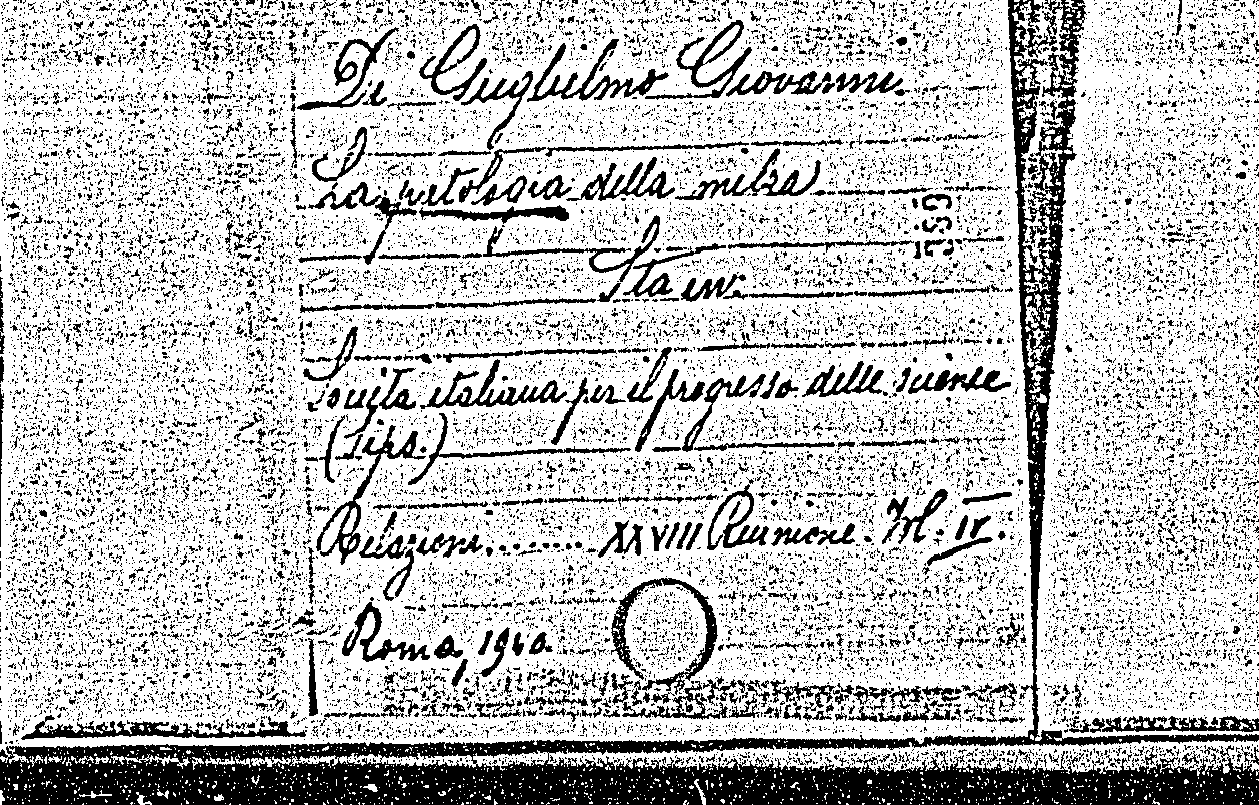 Di Guglielmo Giovanni.
La patologia della milza
Sta in:
Società italiana per il progresso delle scienze
(Sips.)
Relazioni......... XXVIII Riunione. Vol. IV.
Roma, 1940.